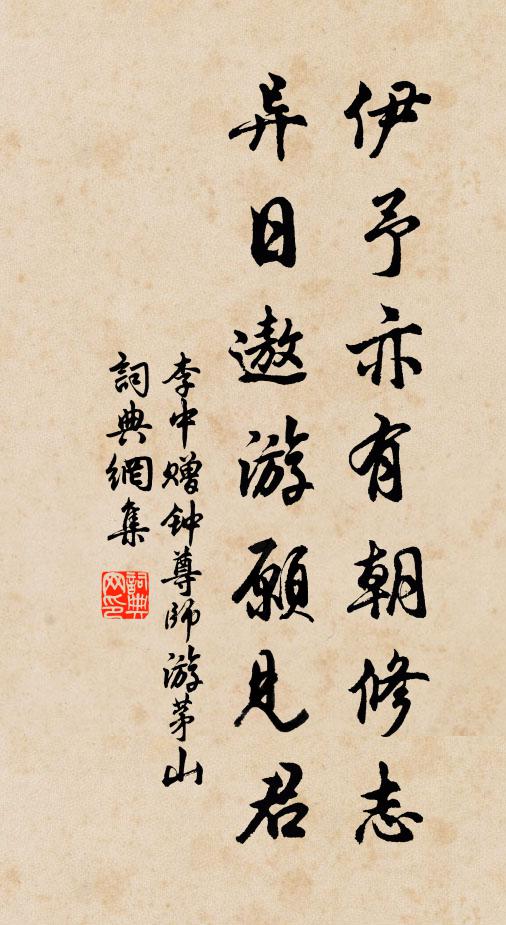 伊予亦有朝修志
异日遨游願見君
李中赠钟尊師游茅山
詞典網集
詞典网印